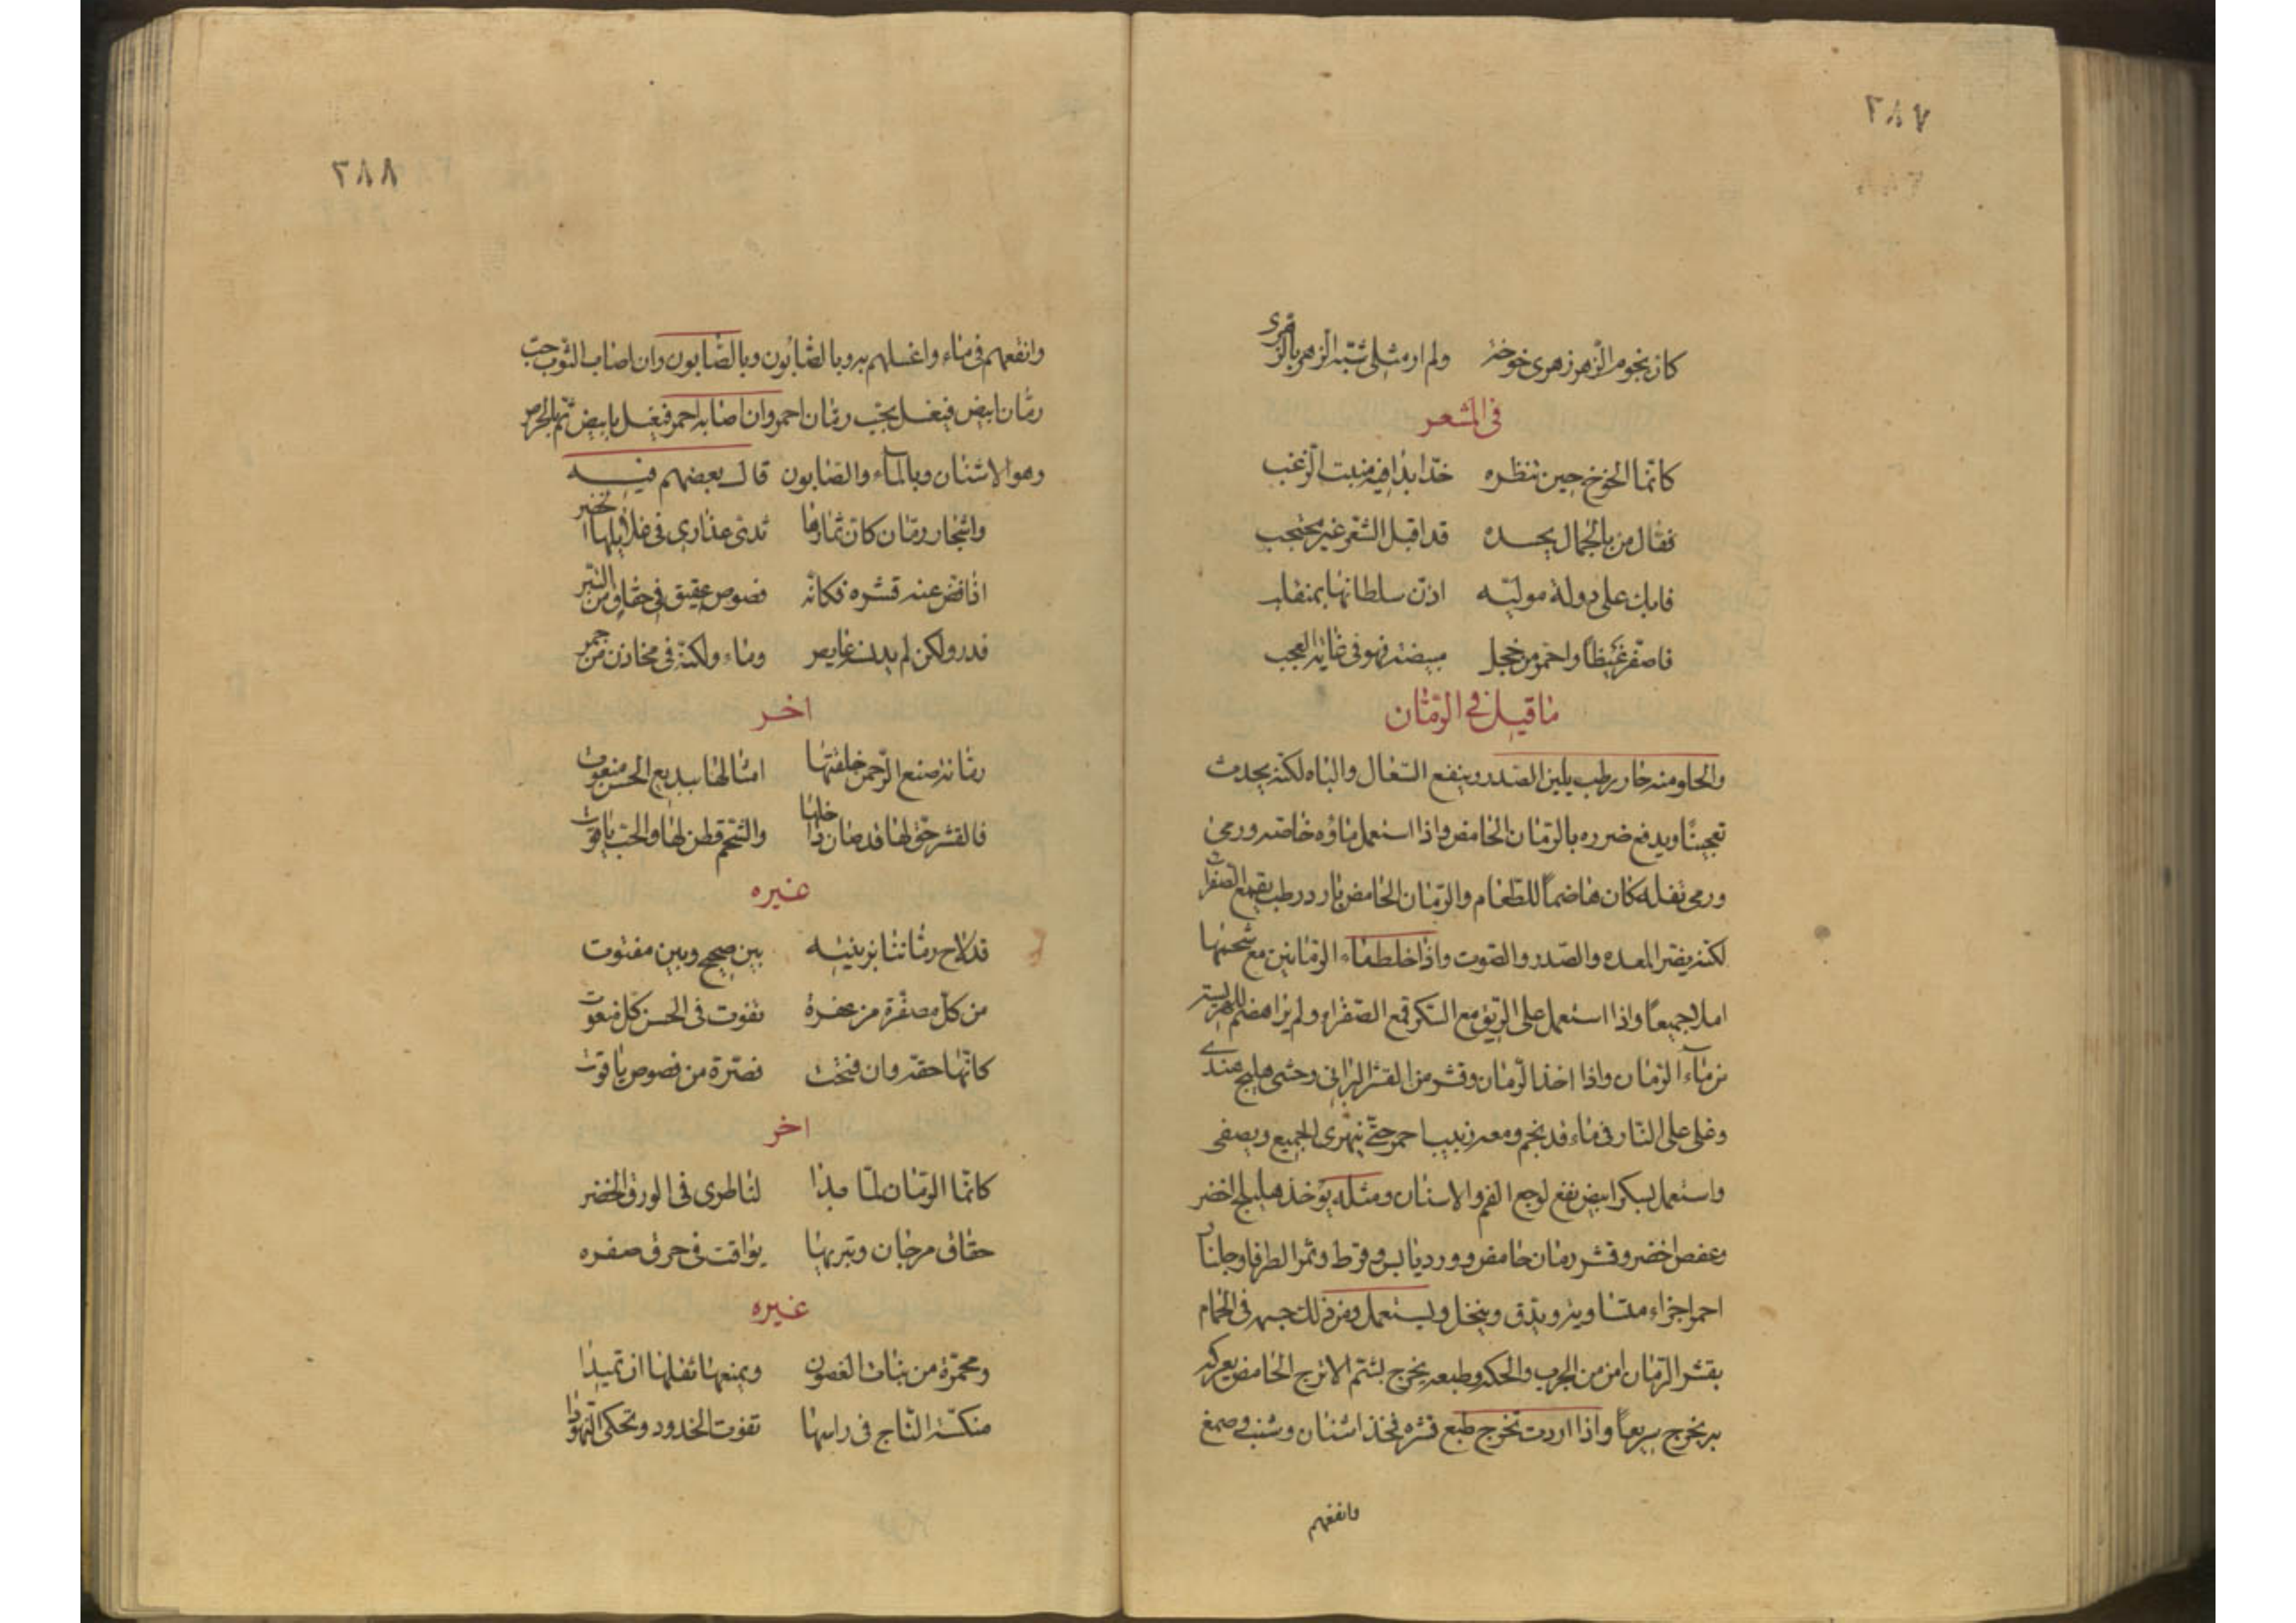 ٢٨٧
كان نجوم الزهر زهرى خوخة ولم ار مثلى شبه الزهر بالزهرى
فى المشعر
كانما الخوخ حين تنظره خدا بدا فيه منبت الزغب
فقال من بالجمال يحسده قد اقبل الشعر غير محتجب
فابك على دولة موليه اذن سلطانها بمنقلب
فاصفر غيظاً واحمر من خجل مبيضه فهو فى غاية العجب
ما قيل فى الرمان
والحلو منه حار رطب يلين الصدر وينفع السعال والباه لكنه يحدث
ويدفع ضرره بالرمان الحامض واذا استعمل ماؤه خاصه ورمى
ورمى ثفله كان هاضماً للطعام والرمان الحامض بارد رطب يقمع الصفرا
لكنه يضر المعده والصدر والصوت واذا خلط ماء الرمانين مع شحمها
جميعاً واذا استعمل على الريق مع السكر قمع الصفراء ولم
من ماء الرمان واذا اخذ الرمان وقشر من القشر البرانى وحشى هليلج هندى
وغلى على النار فى ماء قد نجم ومعه زبيب احمر حتى يتهرى الجميع ويصفى
واستعمل بسكر ابيض نفع لوجع الفم والاسنان ومثله يؤخذ هليلج اخضر
وعفص اخضر وقشر رمان حامض وورد يابس وقرط وثمر الطرفا وجلنار
احمر اجزاء متساويه ويدق وينخل ويستعمل ومن ذلك جسمه فى الحمام
بقشر الرمان امن من الجرب والحكه وطبعه يخرج بشحم الاترج الحامض يعرك
به يخرج سريعاً واذا اردت تخرج طبع قشره فخذ اشنان وشب وصمغ
وانقعهم
٢٨٨
وانقعهم فى ماء واغسلهم به وبالصابون وبالصابون وان اصاب الثوب حب
رمان ابيض فيغسل بحب رمان احمر وان اصابه احمر فيغسل بابيض ثم بالحرض
وهو الاشنان وبالماء والصابون قال بعضهم فيه
واشجار رمان كان ثمارها ثدى عذارى فى غلايلها الخضر
اذا فض عنه قشره فكانه فصوص عقيق فى حقاق من التبر
فدر ولكن لم يدنسه غايص وماء ولكنه فى مخازن من جمر
اخر
رمانة صنع الرحمن خلقتها امثالها ببديع الحسن منعوت
فالقشر حق لها قد صان داخلها والشحم قطن لها والحب ياقوت
غيره
قد لاح رماننا بزينيه بين صحيح وبين مفتوت
من كل مصفرة مزعفرة تفوت فى الحسن كل منعوت
كانها حقه وان فتحت فصرة من فصوص ياقوت
اخر
كانما الرمان لما بدا لناظرى فى الورق الخضر
حقاق مرجان وتبر بها يواقت فى حرق صفره
غيره
ومحمرة من بنات الغصون ويمنعها ثقلها ان تميدا
منكسة التاج فى راسها تفوت الخدود وتحكى النهودا